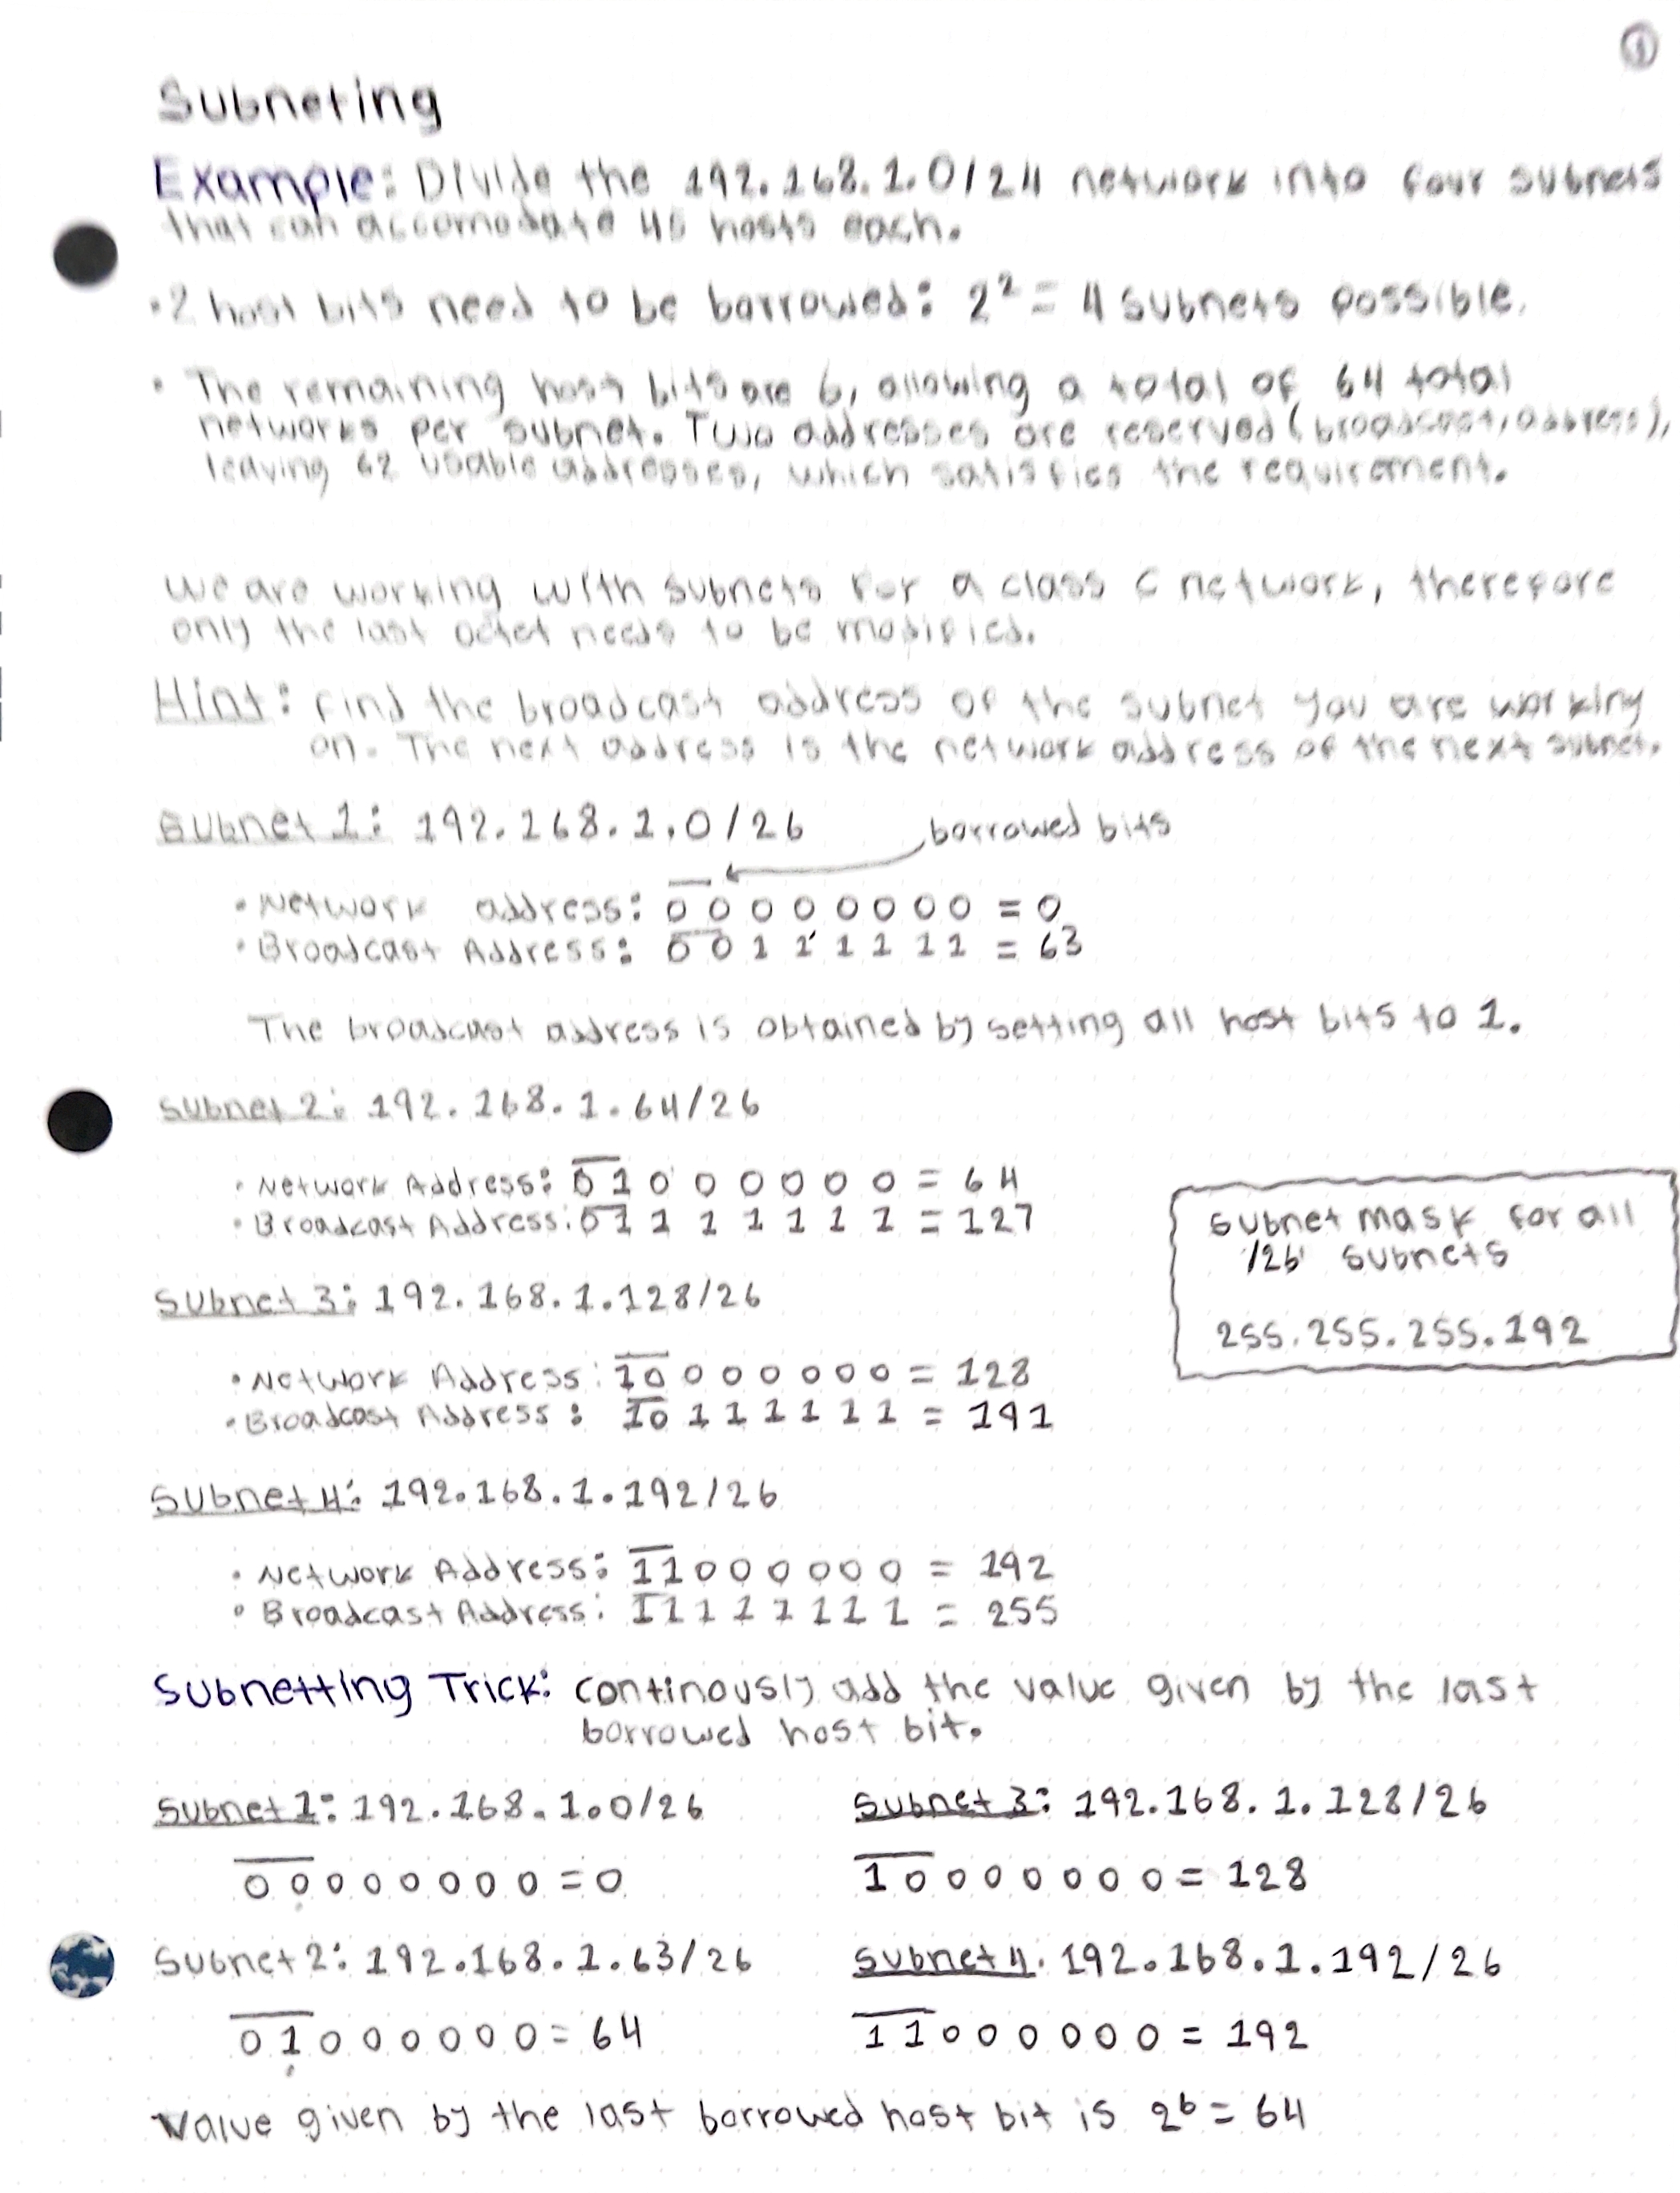 ①
Subneting
Example: Divide the 192.168.1.0/24 network into four subnets
that can accomodate 45 hosts each.
• 2 host bits need to be borrowed: 2² = 4 subnets possible.
• The remaining host bits are 6, allowing a total of 64 total
networks per subnet. Two addresses are reserved (broadcast, address),
leaving 62 usable addresses, which satisfies the requirement.
We are working with subnets for a class C network, therefore
only the last octet needs to be modified.
Hint: Find the broadcast address of the subnet you are working
on. The next address is the network address of the next subnet.
Subnet 1: 192.168.1.0/26
borrowed bits
• Network address: 0 0 0 0 0 0 0 0 = 0
• Broadcast Address: 0 0 1 1 1 1 1 1 = 63
The broadcast address is obtained by setting all host bits to 1.
Subnet 2: 192.168.1.64/26
• Network Address: 0 1 0 0 0 0 0 0 = 64
• Broadcast Address: 0 1 1 1 1 1 1 1 = 127
Subnet mask for all
/26 subnets
255.255.255.192
Subnet 3: 192.168.1.128/26
• Network Address: 1 0 0 0 0 0 0 0 = 128
• Broadcast Address: 1 0 1 1 1 1 1 1 = 191
Subnet 4: 192.168.1.192/26
• Network Address: 1 1 0 0 0 0 0 0 = 192
• Broadcast Address: 1 1 1 1 1 1 1 1 = 255
Subnetting Trick: continously add the value given by the last
borrowed host bit.
Subnet 1: 192.168.1.0/26
0 0 0 0 0 0 0 0 = 0
Subnet 2: 192.168.1.63/26
0 1 0 0 0 0 0 0 = 64
Subnet 3: 192.168.1.128/26
1 0 0 0 0 0 0 0 = 128
Subnet 4: 192.168.1.192/26
1 1 0 0 0 0 0 0 = 192
Value given by the last borrowed host bit is 2⁶ = 64